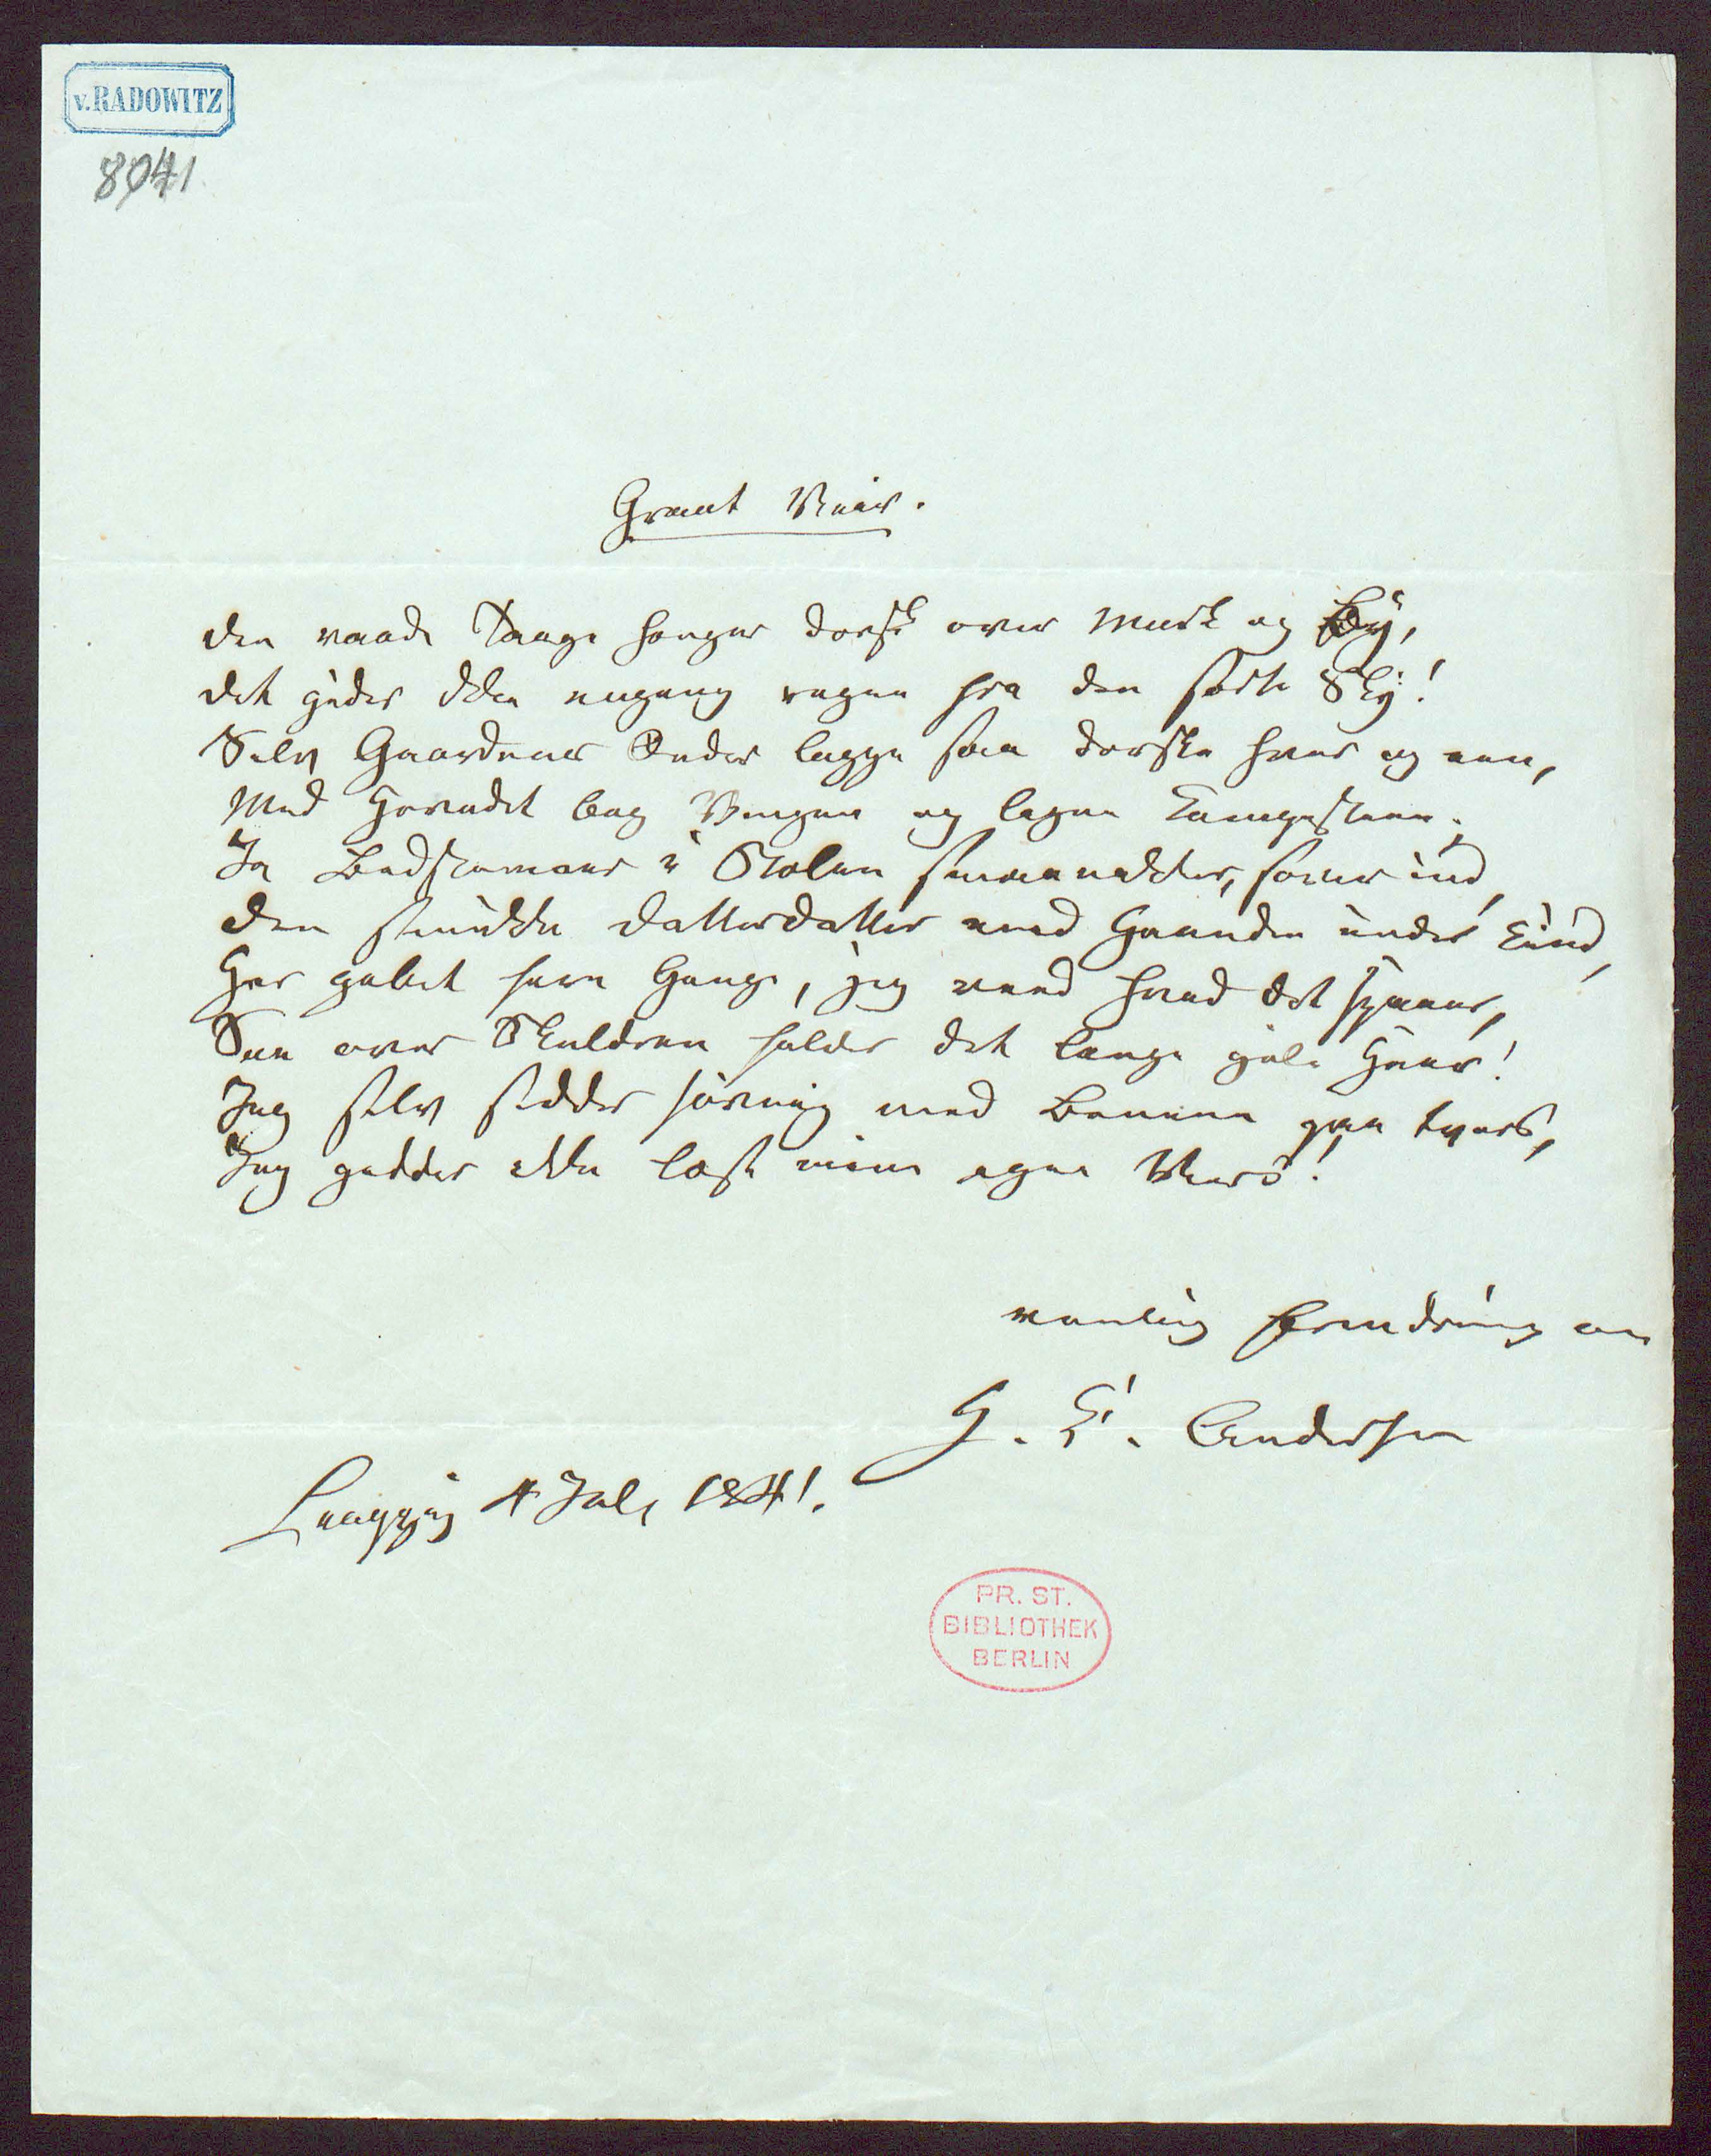 v. RADOWITZ
8041
Graat Veir.
Den vaade Taage hænger dorsk over Mark og By,
Det gider ikke engang regne fra den sorte Sky!
Selv Gaardens Ænder ligge saa dorske hver og een,
Med Hovedet bag Vingen og ligne Kampesteen.
Ja Bedstemoer i Stolen smaanikker, sover ind,
Den smukke Datterdatter med Haanden under Kind,
Har gabet fem Gange, jeg veed hvad det spaaer,
See over Skuldren falder det lange gule Haar!
Jeg selv sidder sørvig med Benene paa tvers,
Jeg gidder ikke læse mine egne Vers!
venlig Erindring om
H. C. Andersen
Leipzig 4 Juli 1841.
PR. ST.
BIBLIOTHEK
BERLIN